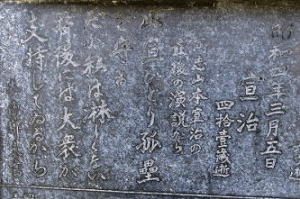 昭和四年三月五日
宣治
四拾壱歳逝
同志山本宣治の
最後の演説から
山宣ひとり孤塁
を守る
だが私は淋しくない
背後には大衆が
支持してゐるから